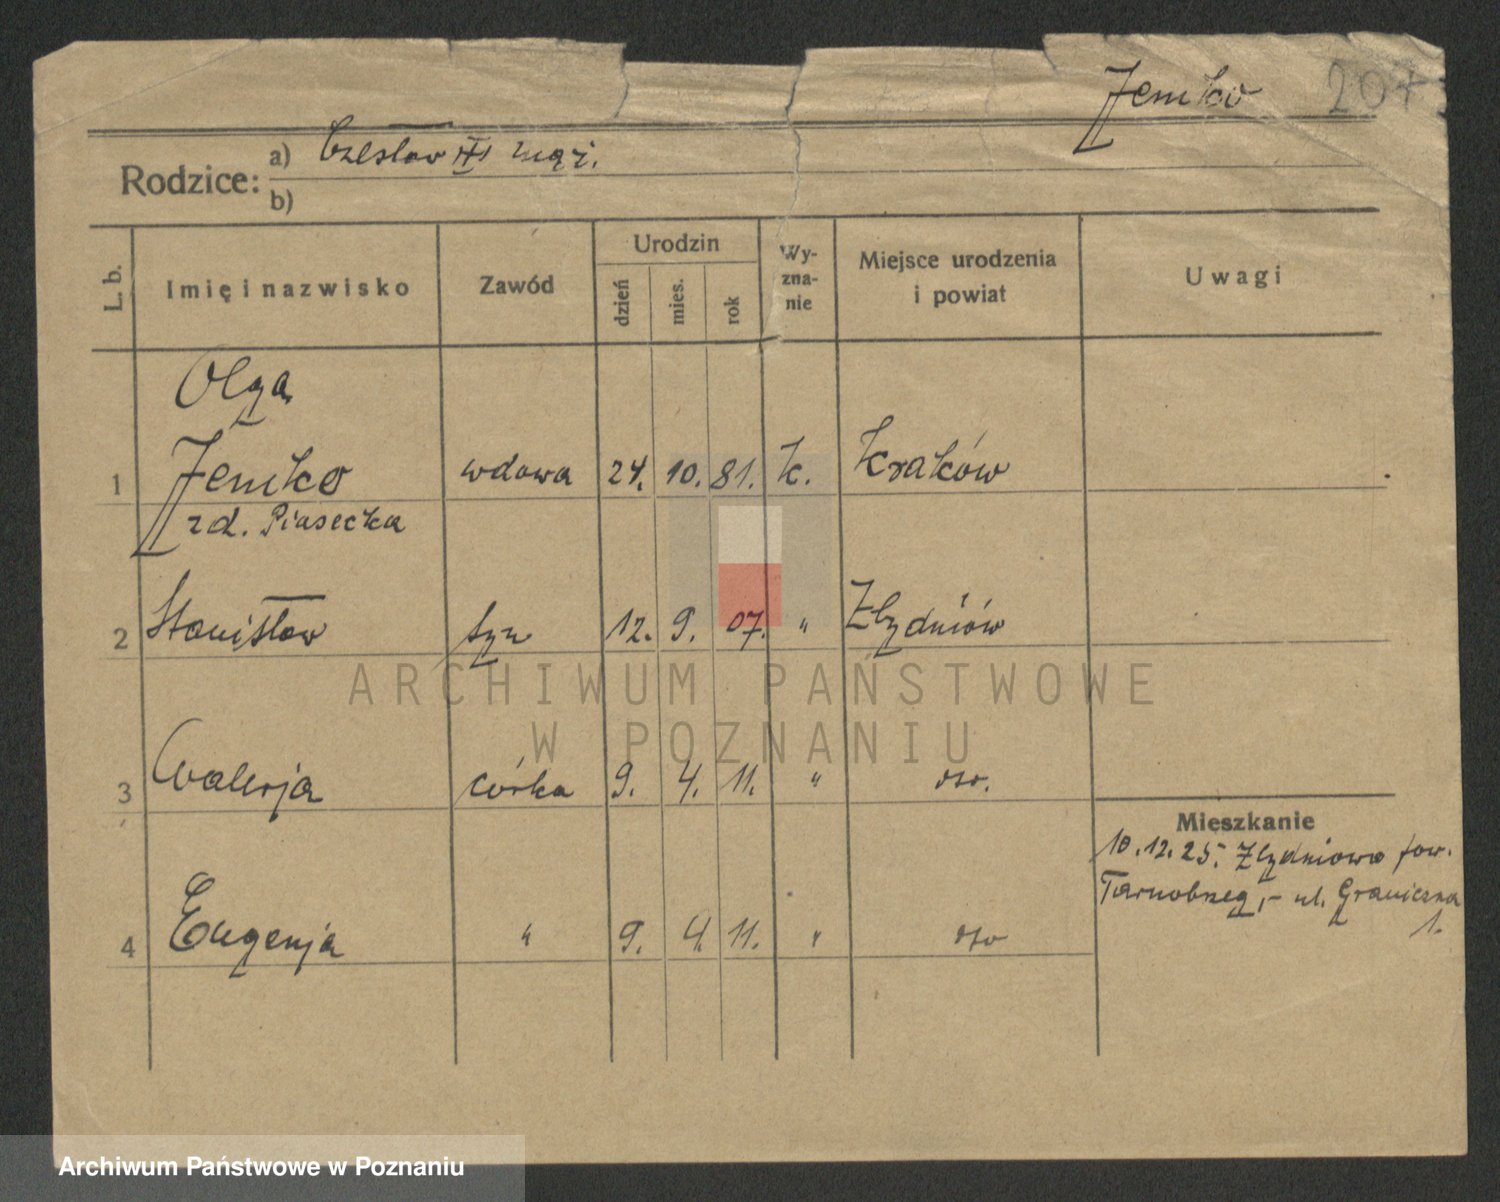 Jemko 207
Rodzice: a) Czesław mąż.
b)
L. b.
Imię i nazwisko
Zawód
Urodzin
dzień
mies.
rok
Wy-
zna-
nie
Miejsce urodzenia
i powiat
Uwagi
Olga
1 Jemko wdowa 24. 10. 81. k. Kraków
zd. Piasecka
2 Stanisław syn 12. 9. 07. " Zbydniów
ARCHIWUM PAŃSTWOWE
W POZNANIU
3 Walerja córka 9. 4. 11. "
Mieszkanie
10.12.25. Zbydniowo pow.
Tarnobrzeg,- ul. Graniczna
1.
4 Eugenja " 9. 4. 11. "
Archiwum Państwowe w Poznaniu